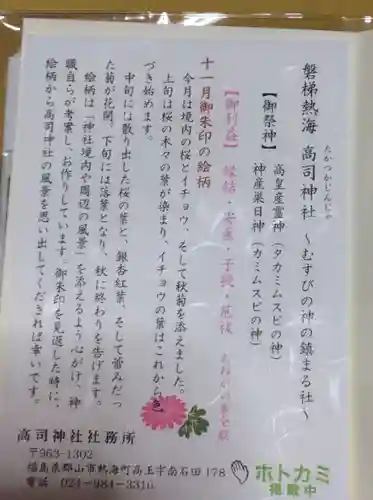 磐梯熱海 高司神社 ～むすびの神の鎮まる社～
たかつかじんじゃ
【御祭神】 高皇産霊神（タカミムスビの神）
神産巣日神（カミムスビの神）
【御利益】 縁結・安産・子授・厄祓
十一月御朱印の絵柄
今月は境内の桜とイチョウ、そして秋菊を添えました。
上旬は桜の木々の葉が染まり、イチョウの葉はこれから色
づき始めます。
中旬には散り出した桜の葉と、銀杏紅葉、そして蕾みだっ
た菊が花開、下旬には落葉となり、秋に終わりを告げます。
絵柄は「神社境内や周辺の風景」を添えるよう心がけ、神
職自らが考案し、お作りしています。御朱印を見返した時に、
絵柄から高司神社の風景を思い出してくだされば幸いです。
高司神社社務所
〒963-1302
福島県郡山市熱海町高玉字南石田178
電話 024-984-3316
ホトカミ
掲載中